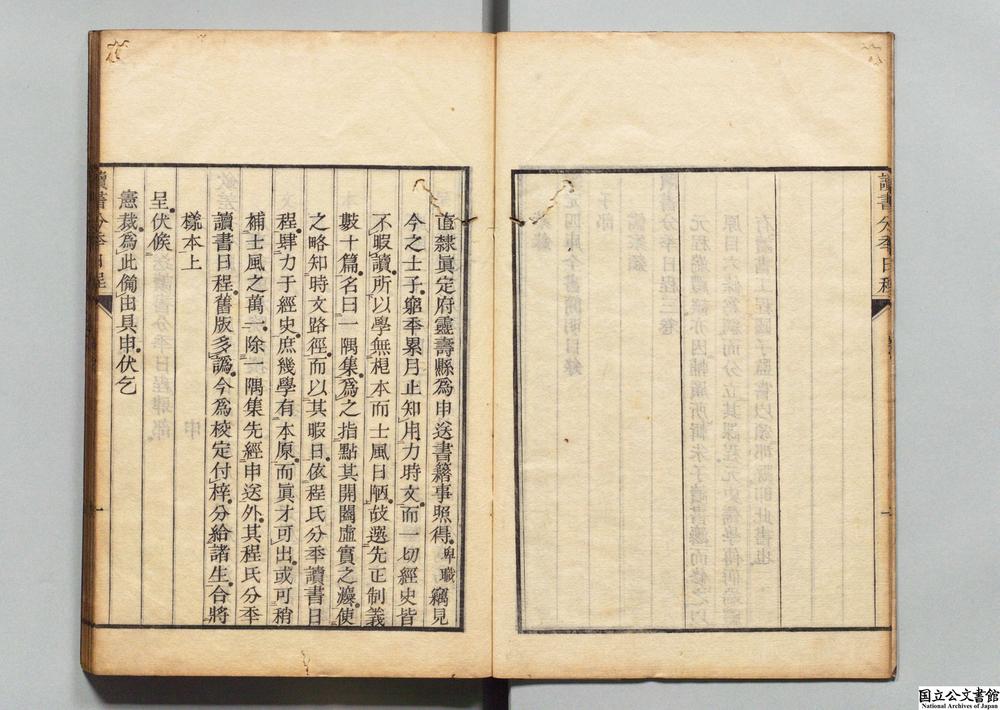 讀書分秊日程
一
直隸眞定府靈壽縣爲申送書籍事照得卑職竊見
今之士子窮秊累月止知用力時文而一切經史皆
不暇讀所以學無根本而士風日陋故選先正制義
數十篇名曰一隅集爲之指點其開闔虛實之灋使
之略知時文路徑而以其暇日依程氏分秊讀書日
程肆力于經史庶幾學有本原而眞才可出或可稍
補士風之萬一除一隅集先經申送外其程氏分秊
讀書日程舊版多譌今爲校定付梓分給諸生合將
樣本上
呈伏候
憲裁爲此僃由具申伏乞
讀書分秊日程
一
国立公文書館
National Archives of Japan